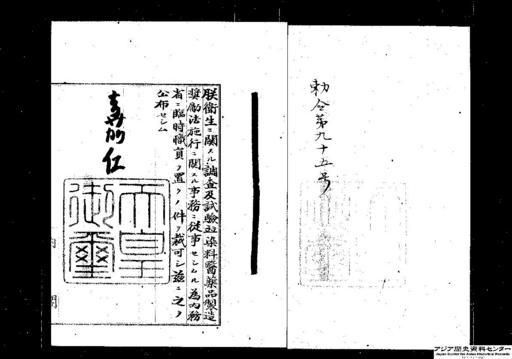 勅令第九十五号
朕衛生ニ関スル調査及試験並染料医薬品製造
奨励法施行ニ関スル事務ニ従事セシムル為内務
省ニ臨時職員ヲ置クノ件ヲ裁可シ茲ニ之ヲ
公布セシム
嘉仁
天皇御璽
アジア歴史資料センター
Japan Center for Asian Historical Records